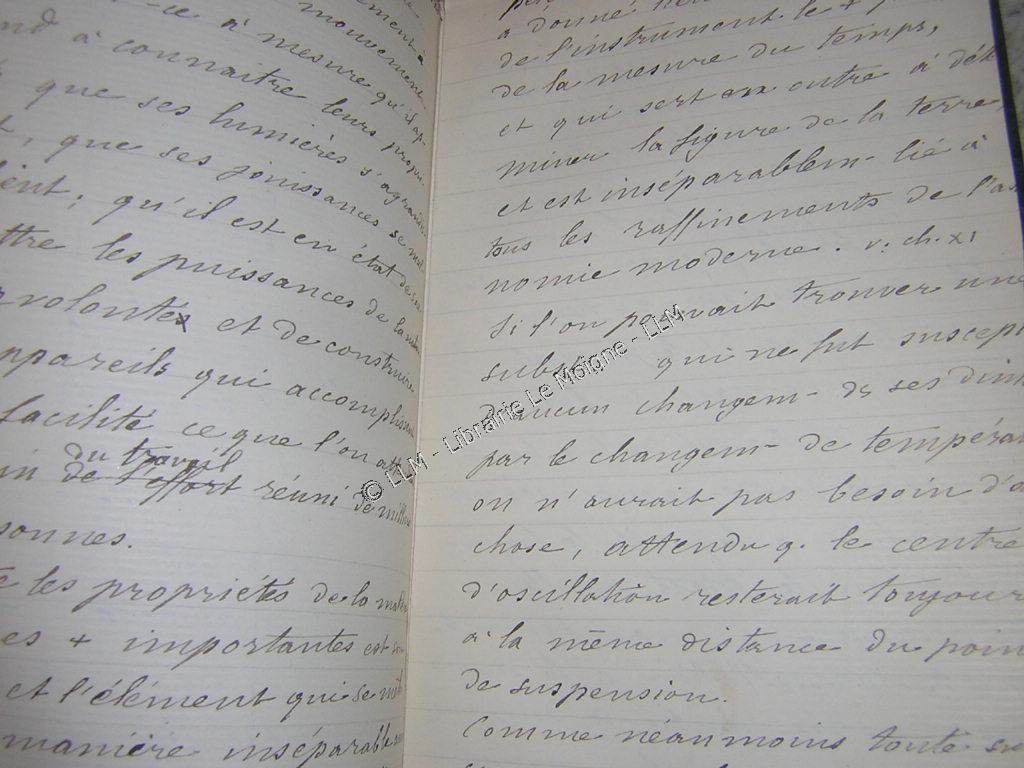 mouvement à
-ce à mesure qu'il ap-
nd à connaitre leurs propri
que ses lumières s'agrandis
t, que ses jouissances se mul
lient, qu'il est en état de sou
ttre les puissances de la nature
volontés et de construire
appareils qui accomplissent
facilité ce que l'on att
du travail
in de l'effort réuni de millie
sonnes.
te les propriétés de la matiè
es + importantes est son
et l'élément qui se mêl
manière inséparable
a donné
de l'instrument le + p
de la mesure du temps,
et qui sert en outre à déte
miner la figure de la terre,
et est inséparablem- lié à
tous les raffinements de l'as
nomie moderne. v. ch. XI
Si l'on pouvait trouver une
subst qui ne fut suscepti
d'aucun changem- de ses dim
par le changem- de tempéra
on n'aurait pas besoin d'a
chose, attendu q. le centre
d'oscillation resterait toujours
à la même distance du poin
de suspension.
Comme néanmoins toute su
© LLM - Librairie Le Moigne - LLM